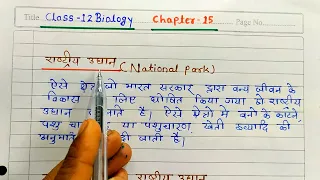 Title Class-12 Biology Chapter-15
राष्ट्रीय उद्यान (National park)
ऐसे क्षेत्र जो भारत सरकार द्वारा वन्य जीवन के
विकास लिए घोषित किया गया हो राष्ट्रीय
उद्यान कहलाते है। ऐसे क्षेत्रो में वनो के काटने,
पशु या पशुचारण, खेती इत्यादि की
अनुमति दी जाती है।
राष्ट्रीय उद्यान